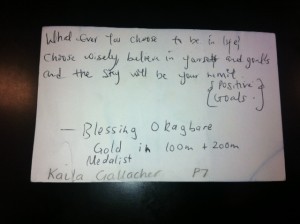 What-Ever You choose to be in life,
choose wisely, believe in yourself and goals
and the sky will be your limit
{ Positive
{ Goals.
— Blessing Okagbare
Gold in 100m + 200m
Medalist
Kaila Gallacher P7